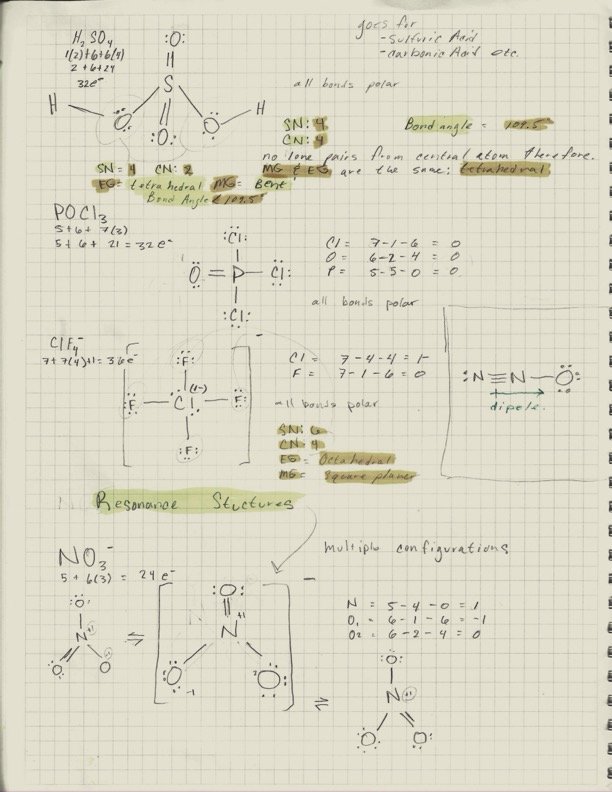 H2SO4
1(2)+6+6(4)
2+6+24
32e-
:O:
S
H
:O:
:O:
:O:
H
goes for
- sulfuric Acid
- carbonic Acid etc.
all bonds polar
SN: 4
CN: 4
Bond angle = 109.5°
no lone pairs from central atom therefore.
MG & EG are the same: tetrahedral
SN = 4 CN: 2
EG = tetrahedral MG = Bent
Bond Angle < 109.5°
POCl3
5+6+7(3)
5+6+21=32e-
:Cl:
:O=P—Cl:
:Cl:
Cl = 7-1-6 = 0
O = 6-2-4 = 0
P = 5-5-0 = 0
all bonds polar
ClF4-
7+7(4)+1=36e-
:F:
:F—Cl—F:
(1-)
:F:
-
Cl = 7-4-4 = 1-
F = 7-1-6 = 0
all bonds polar
:N≡N—O:
dipole.
SN: 6
CN: 4
EG = Octahedral
MG = Square planer
Resonance Stuctures
Multiple configurations
NO3-
5+6(3) = 24e-
:O:
N +1
O
O
⇌
:O:
N +1
:O: -1
2 O:
-
N = 5-4-0 = 1
O1 = 6-1-6 = -1
O2 = 6-2-4 = 0
⇌
:O:
N +1
:O:
:O: